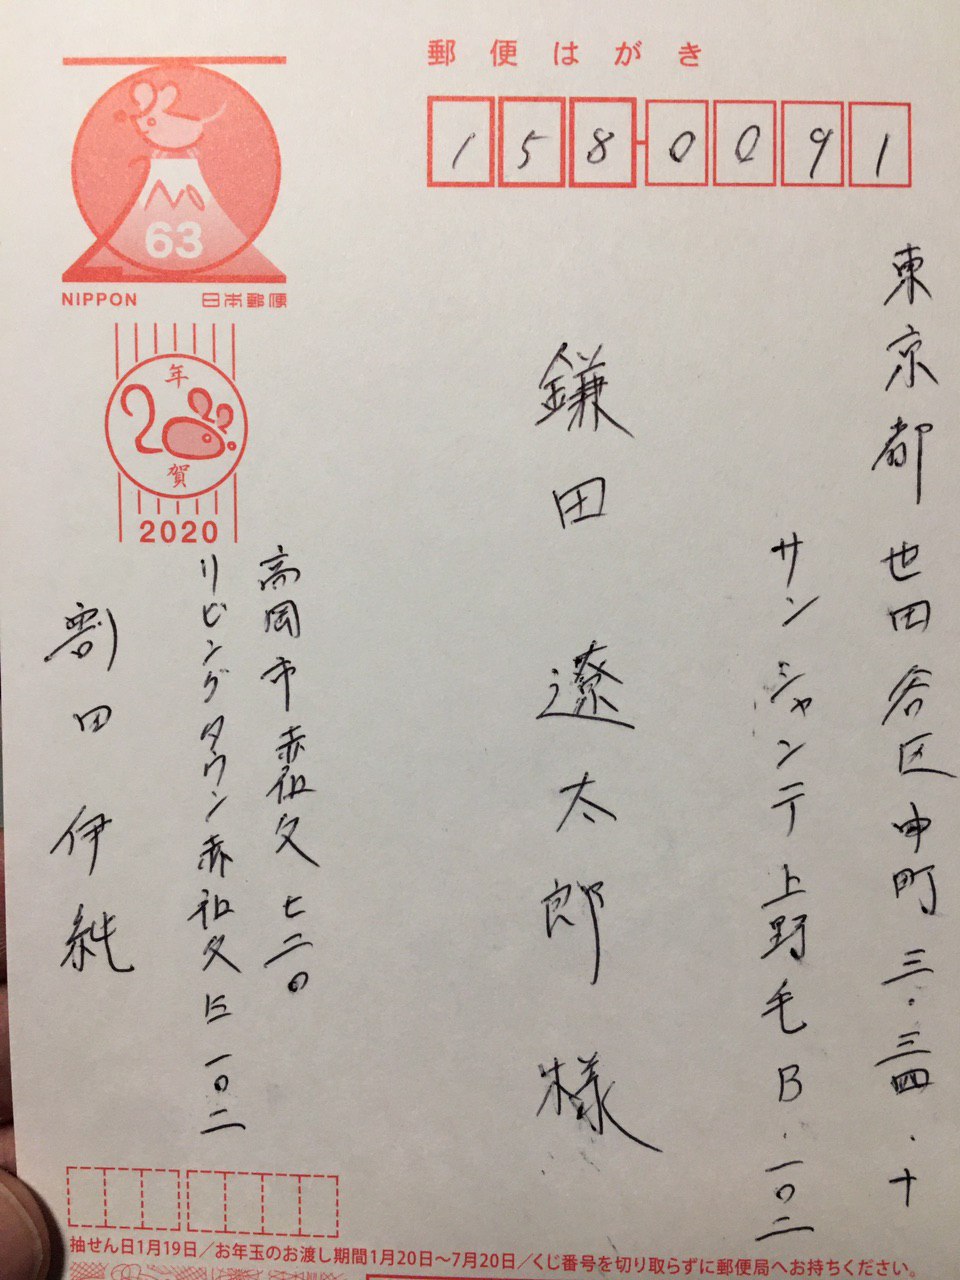 郵便はがき
158-0091
東京都世田谷区中町三・三四・十
サンシャンテ上野毛B・一〇二
鎌田遼太郎様
63
NIPPON 日本郵便
年
賀
2020
高岡市赤祖父七二〇
リビングタウン赤祖父E一〇二
割田伊純
抽せん日1月19日/お年玉のお渡し期間1月20日〜7月20日/くじ番号を切り取らずに郵便局へお持ちください。